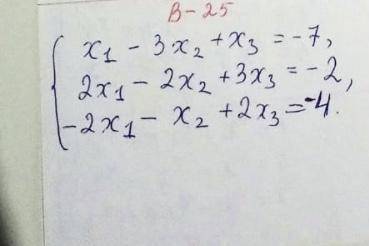 В-25
x₁ - 3x₂ + x₃ = -7,
2x₁ - 2x₂ + 3x₃ = -2,
-2x₁ - x₂ + 2x₃ = -4.